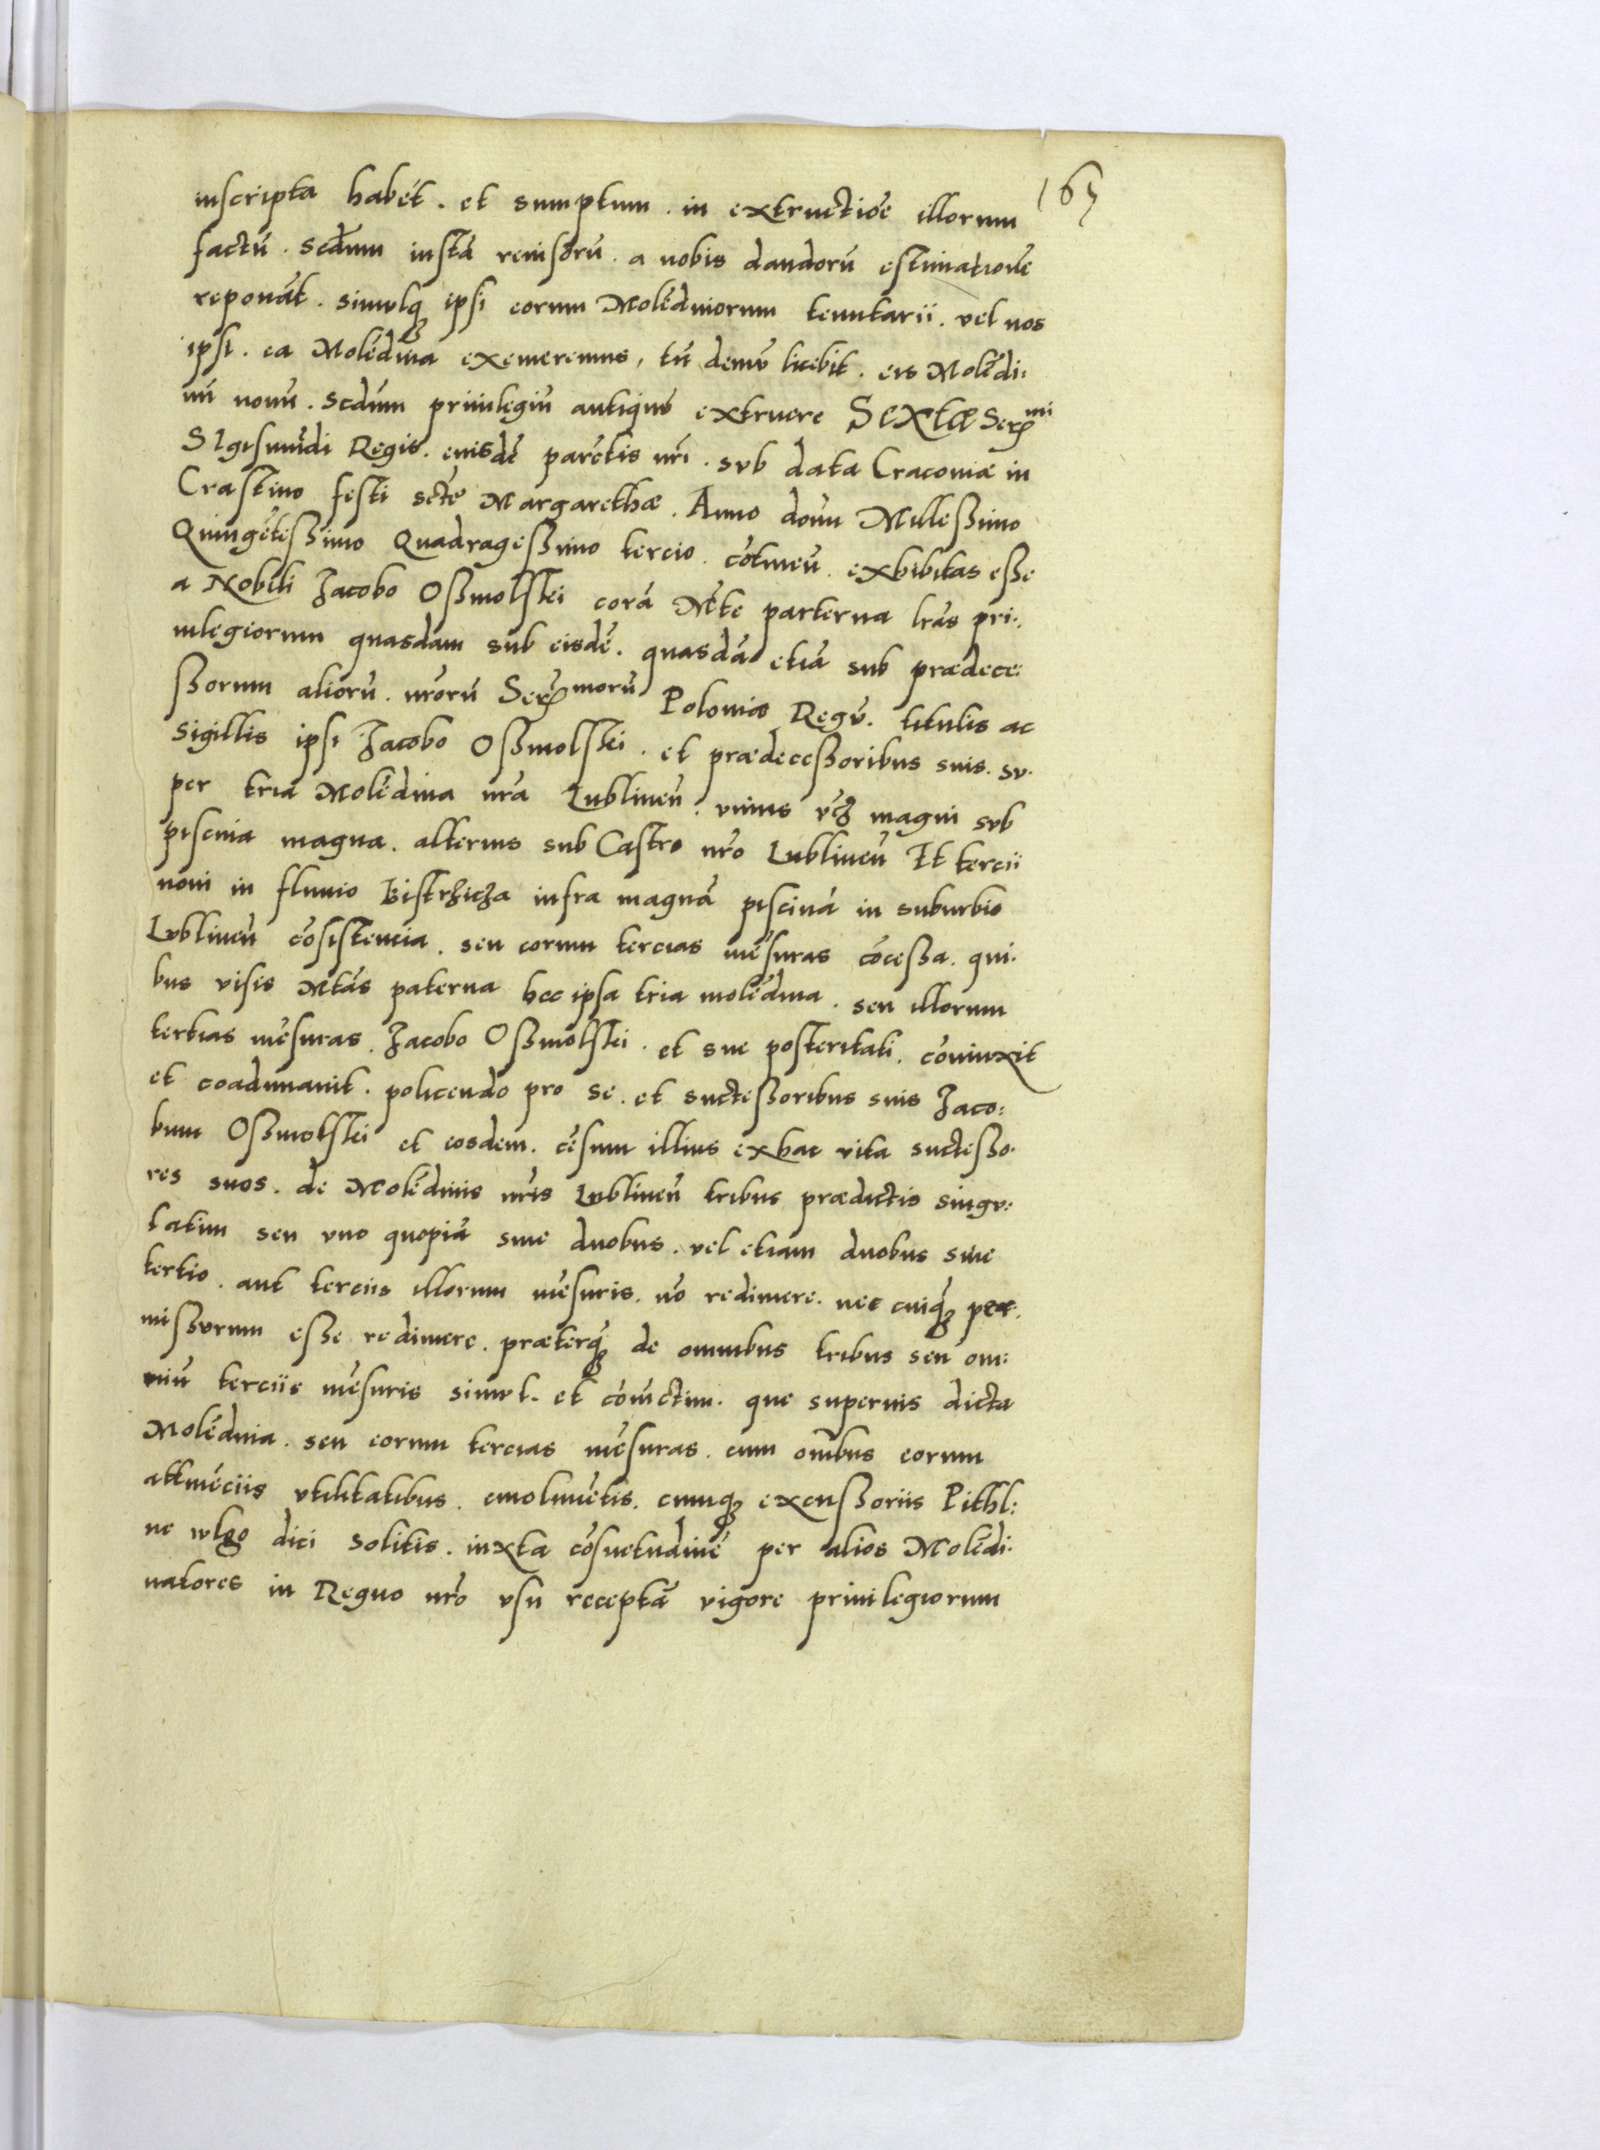 165
inscripta habēt. et sumptum. in extructiōe illorum
factū. scdum iustā reuisorū. a nobis dandorū estimationē
reponāt. simulq ipsi eorum Molēdinorum tenutarii. vel nos
ipsi. ea Molēdina exemeremus, tū demū licebit. eis Molēdi:
nū nouū. scdūm priuilegiū antiquū extruere SEXTÆ Serᵐⁱ
SIgismūdi Regis. eiusdē parētis nrī. sub data Cracouiæ in
Crastino festi sctē Margarethæ. Anno domī Milleßimo
Quingēteßimo Quadrageßimo tercio. cōtineñ. exhibitas eße
a Nobili Jacobo Oßmolskei corā Mte parterna lrās pri:
uilegiorum quasdam sub eisdē. quasdā etiā sub prædece:
ßorum aliorū. nrōrū Serᵐorū Poloniæ Regū. titulis ac
sigillis ipsi Jacobo Oßmolskei. et prædeceßoribus suis. su:
per tria Molēdina nrā Lublineñ. unius vcz magni sub
piscina magna. alterius sub Castro nrō Lublineñ Et tercii
noui in fluuio Bistrzicza infra magnā piscinā in suburbio
Lublineñ cōsistencia. seu eorum tercias mēsuras cōceßa. qui:
bus visis Mtās paterna hec ipsa tria molēdina. seu illorum
tertias mēsuras. Jacobo Oßmolskei. et sue posteritati. cōniunxit
et coadunauit. policendo pro se. et succeßoribus suis Jaco:
bum Oßmolskei et eosdem. cēsum illius exhac vita succeßo:
res suos. de Molēdinis nrīs Lublineñ tribus prædictis singu:
latim seu uno quopiā siue duobus. vel etiam duobus sine
tertio. aut terciis illorum mēsuris. nō redimere. nec cuiq per:
mißurum eße redimere. præterq de omnibus tribus seu om:
niū terciis mēsuris simul. et cōiūctim. que superius dicta
Molēdina. seu eorum tercias mēsuras. cum omībus eorum
attinēciis vtilitatibus. emolimētis. cumq excußoriis Pithl:
ne wlgo dici solitis. iuxta cōsuetudinē per alios Molēdi:
natores in Regno nrō vsu receptā vigore priuilegiorum